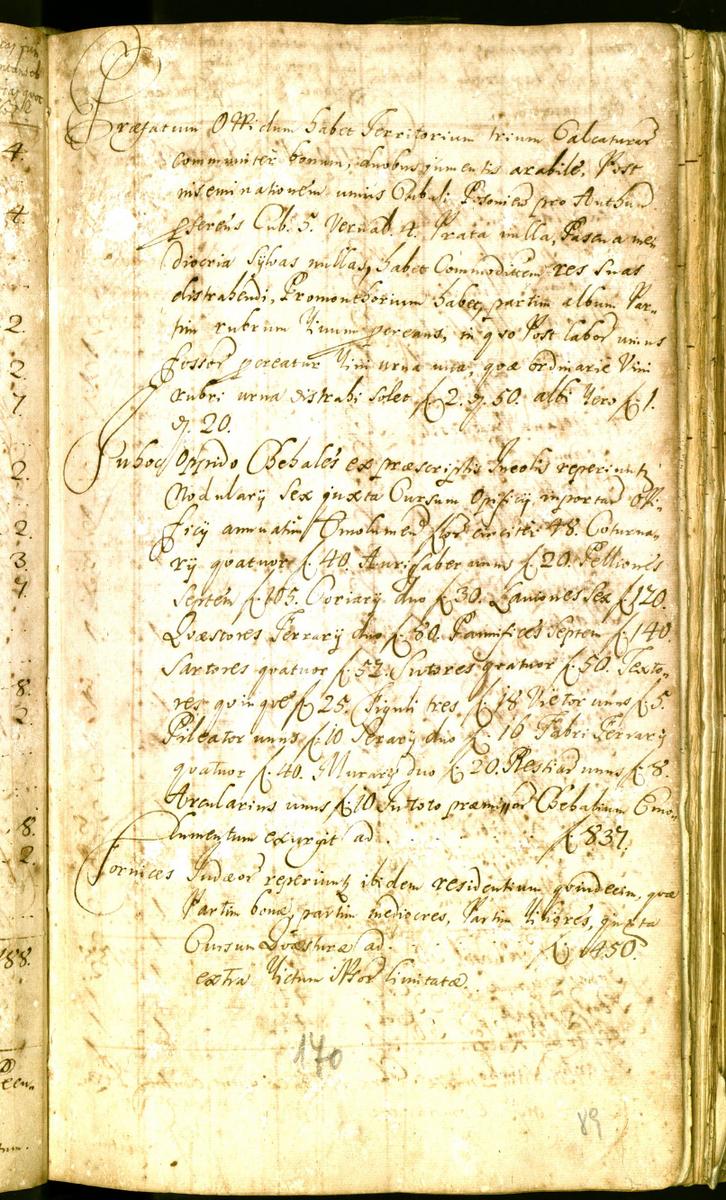 Præfatum Oppidum habet Territorium trium Calcaturar
communiter bonum, duobus jumentis arabile. Post
inseminationem unius Cubuli Posonien pro Authun
ferens Cub. 5. Vernal. 4. Prata nulla, Pascua me-
diocria Sylvas nullas, habet Commoditatem res suas
distrahendi, Promonthorium habet, partim album Par-
tim rubrum Vinum procreans, in quo Post labor unius
fossor procreatur Vini urna una, quæ ordinarie Vini
rubri urna distrahi solet f. 2. d. 50. albi Vero f. 1.
d. 20.
In hoc Oppido Chehales ex præscriptis Incolis reperiuntr
Nodulary Sex juxta Cursum Opificy important Opi-
ficy annuatim Emolument flor circiter 48. Coturna-
ry quatuor f. 40. Aurifaber unus f. 20. Pelliones
Septem f. 105. Coriary duo f. 30. Laniones Sex f. 120.
Quæstores Ferrary duo f. 80. Pannifices Septem f. 140.
Sartores quatuor f. 52. Sutores quatuor f. 50. Texto-
res quinque f. 25. Figuli tres f. 18 Vietor unus f. 5.
Pileator unus f. 10 Serary duo f. 16 Fabri Ferrary
quatuor f. 40. Murary duo f. 20. Restiar unus f. 8.
Arcularius unus f. 10 In toto præmissor Chehalium Emo-
lumentum exurgit ad f. 837.
Fornices Judæor reperiuntr ibidem residentium quindecim, quæ
Partim bonæ, partim mediocres, Partim Viliores, juxta
Cursum Quæsturæ ad. f. 450.
extra Victum ipsor limitatæ.
170
89